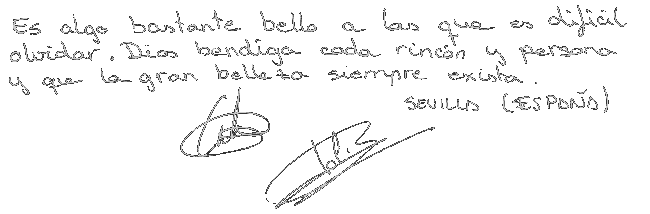 Es algo bastante bello a las que es dificil
olvidar. Dios bendiga cada rincón y persona
y que la gran belleza siempre exista.
SEVILLA (ESPAÑA)